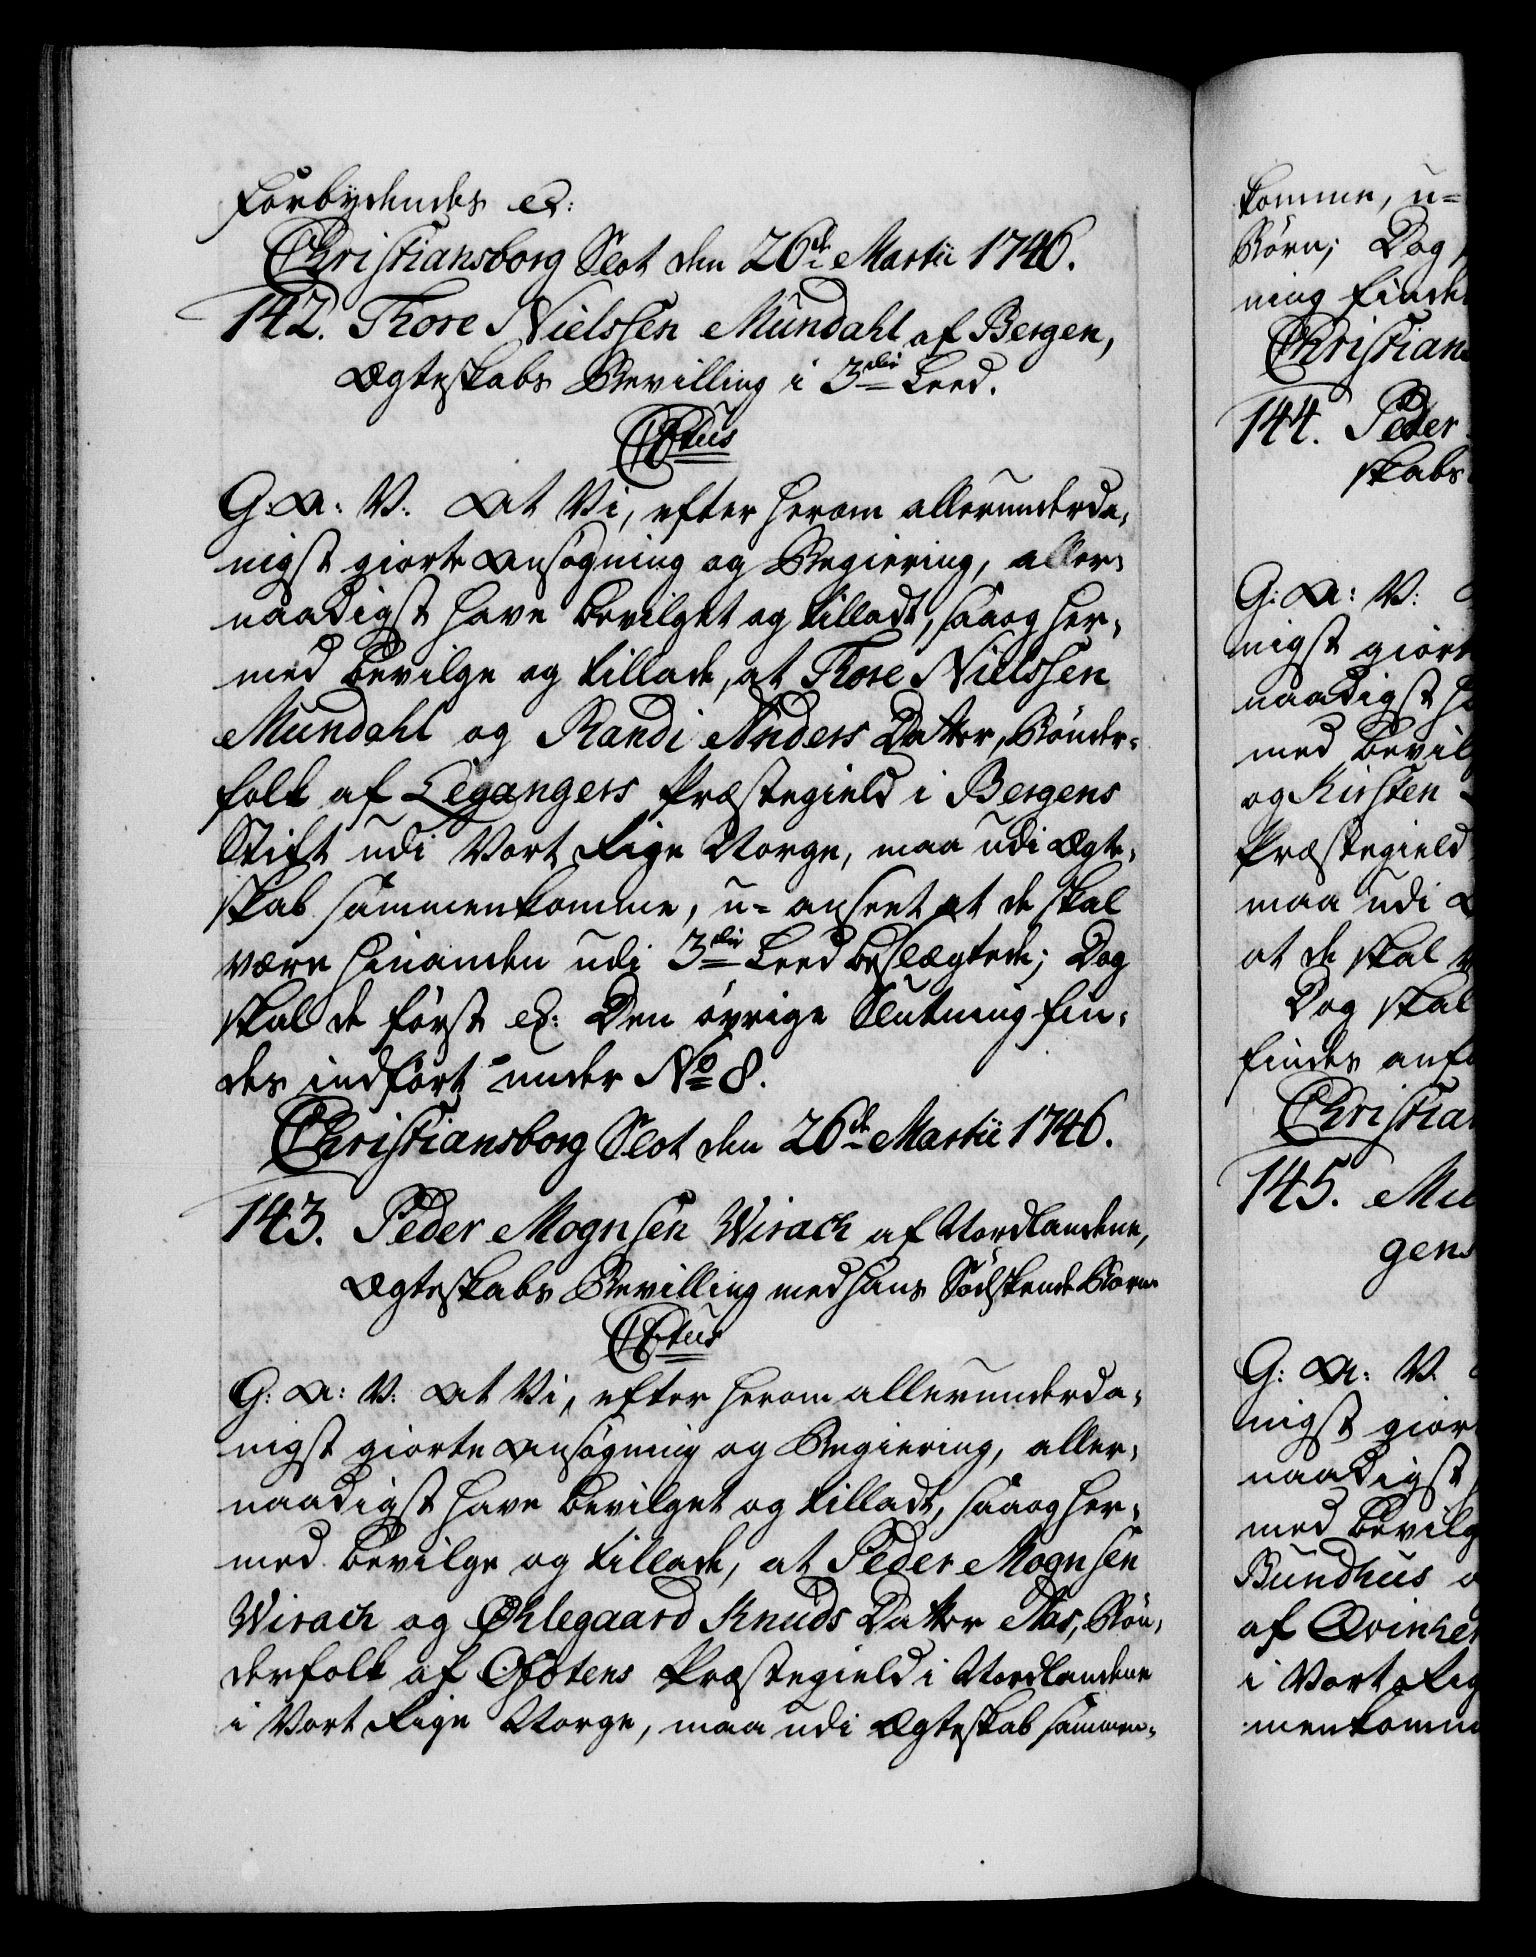 Forbydendes etc:
Christiansborg Slot den 26de Martii 1746.
142. Thore Nielssen Mundahl af Bergen,
Ægteskabs Bevilling i 3die Leed.
C6tus
G: A: V. At Vi, efter herom allerunderda-
nigst giorte Ansøgning og Begiering, aller-
naadigst have bevilget og tilladt, saa og her-
med bevilge og tillade, at Thore Nielssen
Mundahl og Randi Anders Datter, Bønder-
folk af Legangers Præstegield i Bergens
Stift udi Vort Rige Norge, maa udi Ægte-
skab sammenkomme, u- anseet at de skal
være hinanden udi 3die Leed beslægtede; Dog
skal de først etc: Den øvrige Slutning fin-
des indført under No 8.
Christiansborg Slot den 26de Martii 1746.
143. Peder Mognsen Wirach af Nordlandene,
Ægteskabs Bevilling med hans Sødskende Barn
C6tus
G: A: V: At Vi, efter herom allerunderda-
nigst giorte Ansøgning og Begiering, aller-
naadigst have bevilget og tilladt, saa og her-
med bevilge og tillade, at Peder Mognsen
Wirach og Øhlegaard Knuds Datter Nas, Bøn-
derfolk af Ofotens Præstegield i Nordlandene
i Vort Rige Norge, maa udi Ægteskab sammen-
komme, u-
Børn; Dog
ning finde
Christians
144. Peder
skabs
G: A: V:
nigst giort
naadigst ha
med bevil
og Kirsten
Præstegield
maa udi Æ
at de skal v
Dog skal
findes anfø
Christian
145. Mu
gens
G: A: V.
nigst gior
naadigst
med bevilg
Bundhus o
af Qvinher
i Vort Rig
menkomm